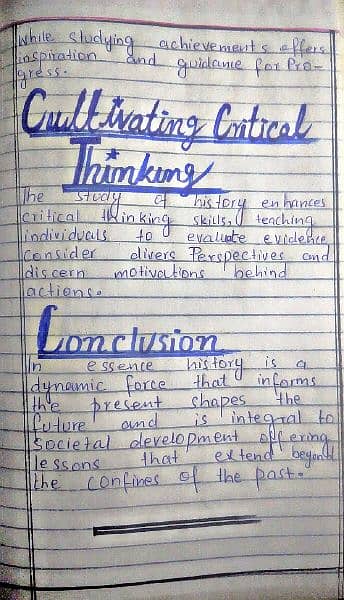 while studying achievements offers
inspiration and guidance for Pro-
gress.
Cultivating Critical
Thinking
The study of history enhances
critical thinking skills, teaching
individuals to evaluate evidence
consider divers Perspectives and
discern motivations behind
actions.
Conclusion
In essence history is a
dynamic force that informs
the present shapes the
future and is integral to
societal development offering
lessons that extend beyond
the confines of the past.